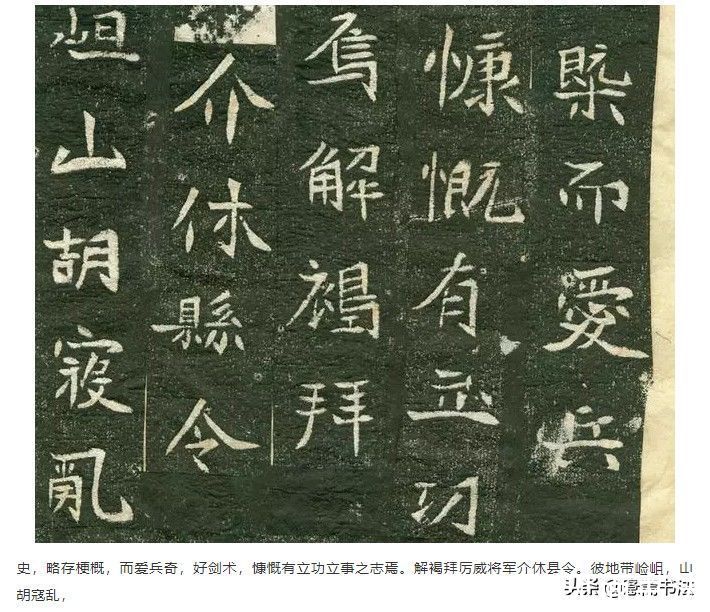 槩而愛兵
慷慨有立功
焉解褐拜
介休縣令
岨山胡寇亂
史，略存梗概，而爱兵奇，好剑术，慷慨有立功立事之志焉。解褐拜厉威将军介休县令。彼地带崄岨，山
胡寇乱，
头条 @书法